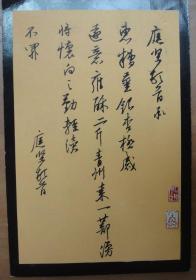 庭堅頓首承
惠糟薑銀杏極感
遠意雍酥二斤青州棗一蔀漫
將懷向之勤輕瀆
不罪
庭堅頓首